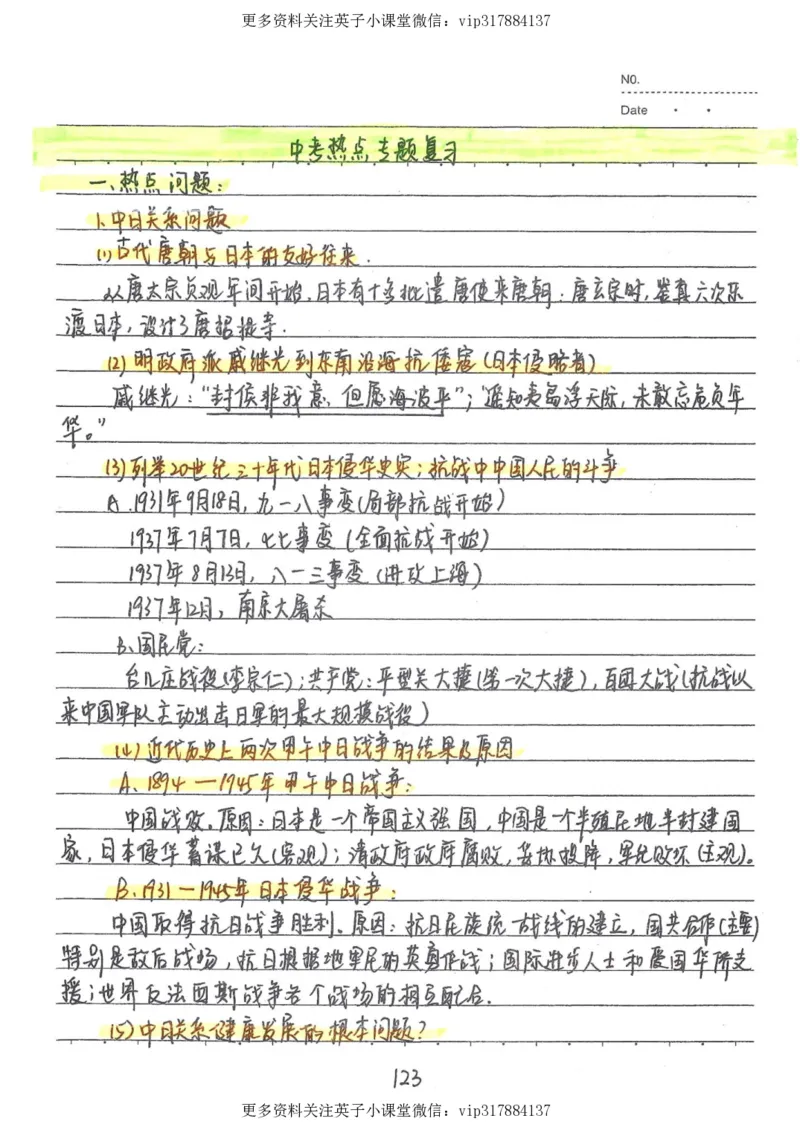 更多资料关注英子小课堂微信：vip317884137
NO.
Date
中考热点专题复习
一、热点问题：
1、中日关系问题
(1)古代唐朝与日本的友好往来.
从唐太宗贞观年间开始，日本有十多批遣唐使来唐朝；唐玄宗时，鉴真六次东
渡日本，设计了唐招提寺.
(2)明政府派戚继光到东南沿海抗倭寇(日本侵略者)
戚继光："封侯非我意，但愿海波平"；"遥知夷岛浮天际，未敢忘危负年
华。"
(3)列举20世纪三十年代日本侵华史实；抗战中中国人民的斗争
A.1931年9月18日，九一八事变(局部抗战开始)
1937年7月7日，七七事变(全面抗战开始)
1937年8月13日，八一三事变(进攻上海)
1937年12月，南京大屠杀
B、国民党：
台儿庄战役(李宗仁)；共产党：平型关大捷(第一次大捷)，百团大战(抗战以
来中国军队主动出击日军的最大规模战役)
(4)近代历史上两次甲午中日战争的结果及原因
A、1894—1945年甲午中日战争：
中国战败。原因：日本是一个帝国主义强国，中国是一个半殖民地半封建国
家，日本侵华蓄谋已久(客观)；清政府政府腐败，妥协投降，军纪败坏(主观)。
B、1931—1945年日本侵华战争：
中国取得抗日战争胜利。原因：抗日民族统一战线的建立，国共合作(主要)
特别是敌后战场，抗日根据地军民的英勇作战；国际进步人士和爱国华侨支
援；世界反法西斯战争各个战场的相互配合.
(5)中日关系健康发展的根本问题？
123
更多资料关注英子小课堂微信：vip317884137